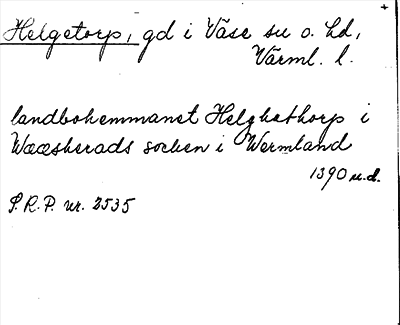 +
Helgetorp, gd i Väse sn o. hd,
Värml. l.
landbohemmanet Helghethorp i
Wææsherads socken i Wermland
1390 u.d.
S.R.P. nr. 2535